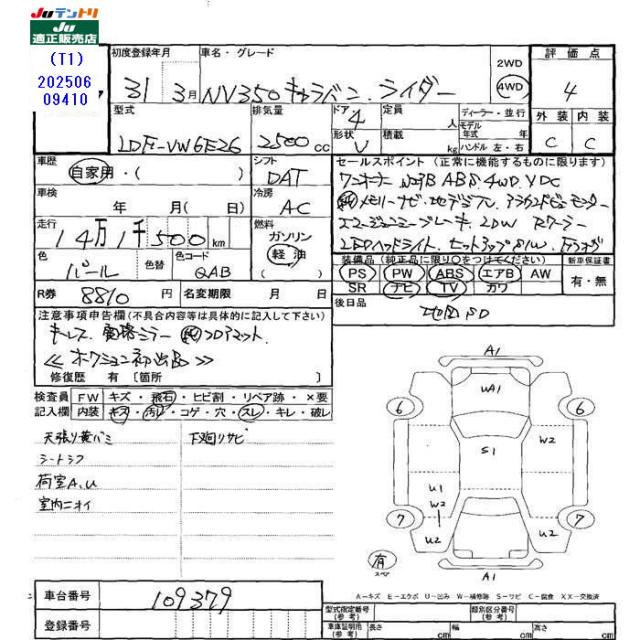 JUテントリ
JU
適正販売店
(T1)
202506
09410
初度登録年月 車名・グレード 2WD 4WD 評価点
31 3月 NV350キャラバン ライダー 4
型式 排気量 ドア 定員 ディーラー・並行 外装 内装
LDF-VW6E26 2500cc 4 人 モデル年式 年 C C
形状 V 積載 kg ハンドル 左・右
車歴 シフト セールスポイント (正常に機能するものに限ります)
自家用・( ) DAT
ワンオーナー WエアB ABS 4WD VDC
車検 冷房
年 月(日) AC
純メモリーナビ 地デジ アラウンドビューモニター
走行 燃料
14万1千500km ガソリン 軽油
エマージェンシーブレーキ LDW Rクーラー
LEDヘッドライト
色 色替 色コード
パール QAB
装備品(純正品に限り○をつけてください) 新車保証書
PS PW ABS エアB AW 有・無
SR ナビ TV カワ
R券 8810円 名変期限 月 日
後日品
地図SD
注意事項申告欄(不具合内容等は具体的に記入して下さい)
キーレス 電格ミラー 純フロアマット
≪オークション初出品≫
修復歴 有 [箇所 ]
検査員 FW キズ・飛石・ヒビ割・リペア跡・×要
記入欄 内装 キズ・汚レ・コゲ・穴・スレ・キレ・破レ
天張り黄バミ 下廻りサビ
シートシワ
荷室A.U
室内ニオイ
A1
UA1
6 6
S1 W2
U1
W2
7 7
U2 U2
有
スペア
A1
A-キズ E-エクボ U-凹み W-補修跡 S-サビ C-腐食 XX-交換済
車台番号 109379
登録番号
型式指定番号 類別区分番号
車庫証明用 長さ cm 幅 cm 高さ cm